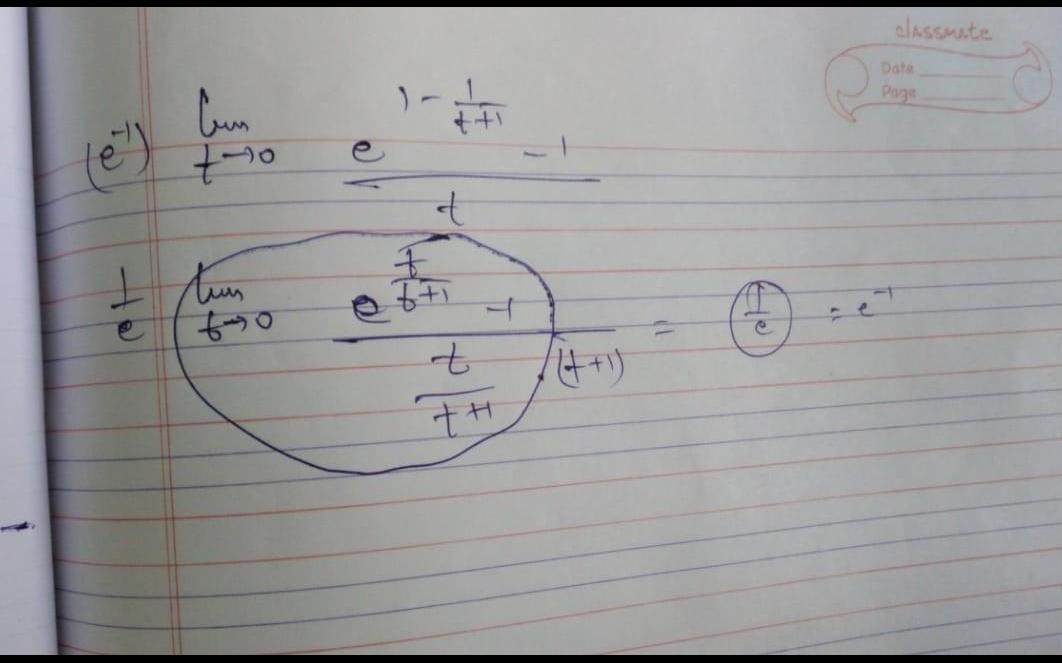 classmate
Date
Page
(e⁻¹) lim t→0 (e^(1 - 1/(t+1)) - 1) / t
1/e lim t→0 (e^(t/(t+1)) - 1) / ((t/(t+1)) (t+1)) = 1/e = e⁻¹